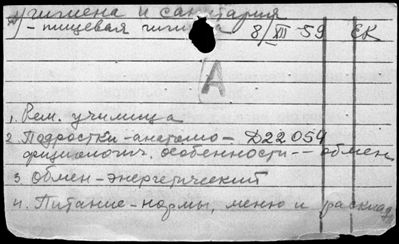 гигиена и санитария
- пищевая гигиена 8/XII-59 ЕК
А
1. Рем. училища
2. Подростки - анатомо - Д22054
физиологич. особенности -- обмен
3. Обмен - энергетический
4. Питание - нормы, меню и расклад